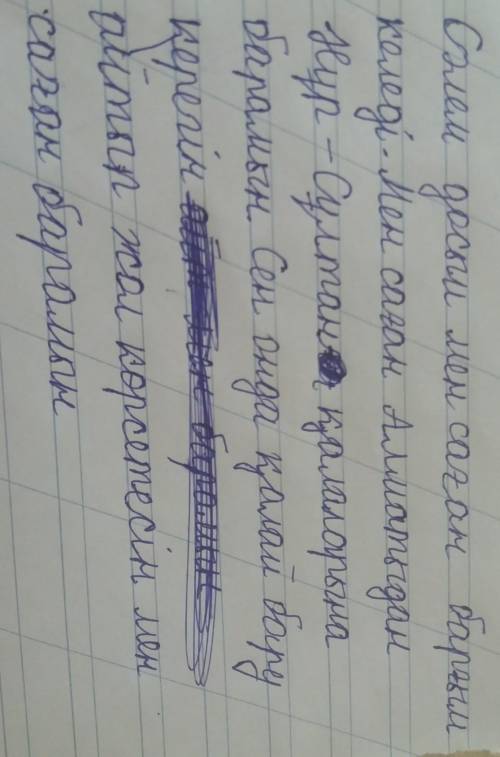 Сәлем досым мен саған барғым
келеді. Мен саған Алматыдан
Нұр-Сұлтан қалаларына
барамын Сен онда қалай бару
керегін
айтып жол көрсетесін мен
саған барамын